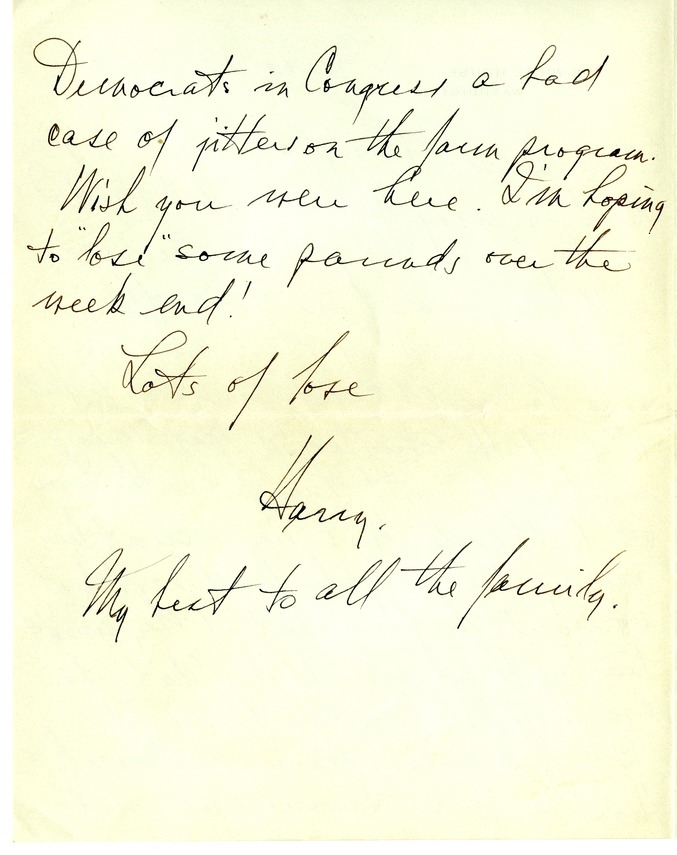 Democrats in Congress a bad
case of jitters on the farm program.
Wish you were here. I'm hoping
to "lose" some pounds over the
week end!
Lots of love
Harry.
My best to all the family.